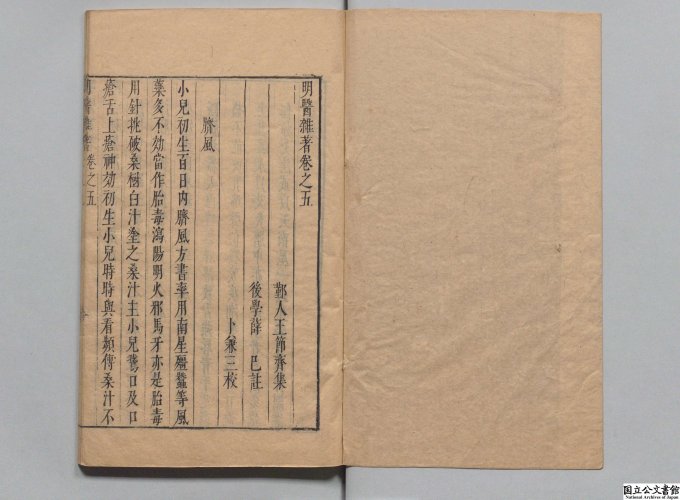 明醫雜著卷之五
鄞人王節齊集
後學薛己註
卜兼三校
臍風
小兒初生百日内臍風方書率用南星殭蠶等風
藥多不効當作胎毒瀉陽明火邪馬牙亦是胎毒
用針挑破桑樹白汁塗之桑汁主小兒鵞口及口
瘡舌上瘡神効初生小兒時時與看頻傳桑汁不
明醫雜著卷之五
国立公文書館
National Archives of Japan